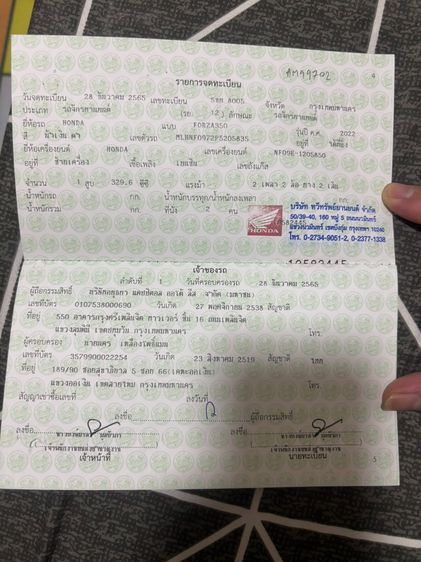 AM99702
4
รายการจดทะเบียน
วันจดทะเบียน 28 ธันวาคม 2565 เลขทะเบียน 5ขฮ 8005 จังหวัด กรุงเทพมหานคร
ประเภท รถจักรยานยนต์ (รย. 12) ลักษณะ รถจักรยานยนต์
ยี่ห้อรถ HONDA แบบ FORZA350 รุ่นปี ค.ศ. 2022
สี น้ำเงิน ดำ เลขตัวรถ อยู่ที่
ยี่ห้อเครื่องยนต์ HONDA เลขเครื่องยนต์ NF09E-1205850
อยู่ที่ ข้างเครื่อง เชื้อเพลิง เบนซิน เลขถังแก๊ส
จำนวน 1 สูบ 329.6 ซีซี แรงม้า 2 เพลา 2 ล้อ ยาง 2 เส้น
น้ำหนักรถ กก. น้ำหนักบรรทุก/น้ำหนักลงเพลา กก.
น้ำหนักรวม กก. ที่นั่ง 2 คน
HONDA
บริษัท ทวีทรัพย์ยานยนต์ จำกัด
50/39-40, 160 หมู่ 5 ถนนนวมินทร์
แขวงนวมินทร์ เขตบึงกุ่ม กรุงเทพฯ 10240
โทร. 0-2734-9051-2, 0-2377-1338
เจ้าของรถ
ลำดับที่ 1 วันที่ครอบครองรถ 28 ธันวาคม 2565
ผู้ถือกรรมสิทธิ์ บริษัทอยุธยา แคปปิตอล ออโต้ ลีส จำกัด (มหาชน)
เลขที่บัตร 0107538000690 วันเกิด 27 พฤศจิกายน 2538 สัญชาติ
ที่อยู่ 550 อาคารกรุงศรีเพลินจิต ทาวเวอร์ ชั้น 16 ถนนเพลินจิต
แขวงลุมพินี เขตปทุมวัน กรุงเทพมหานคร โทร.
ผู้ครอบครอง
เลขที่บัตร 3579900022254 วันเกิด 23 สิงหาคม 2519 สัญชาติ ไทย
ที่อยู่ 189/90 ซอยสุขาภิบาล 5 ซอย 66
แขวงออเงิน เขตสายไหม กรุงเทพมหานคร โทร.
สัญญาเช่าซื้อเลขที่ ลงวันที่
ลงชื่อ ผู้ถือกรรมสิทธิ์
ลงชื่อ ลงชื่อ
เจ้าหน้าที่ นายทะเบียน
5